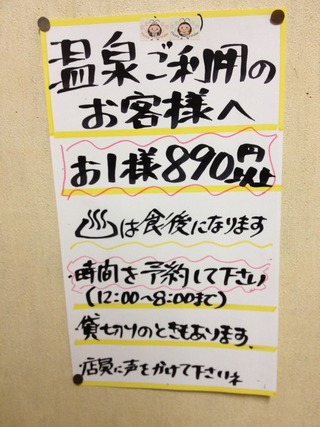 温泉ご利用の
お客様へ
お1様890円以上
♨は食後になります
・時間を予約して下さい
(12:00～8:00まで)
・貸切りのときもあります。
・店員に声をかけて下さいネ